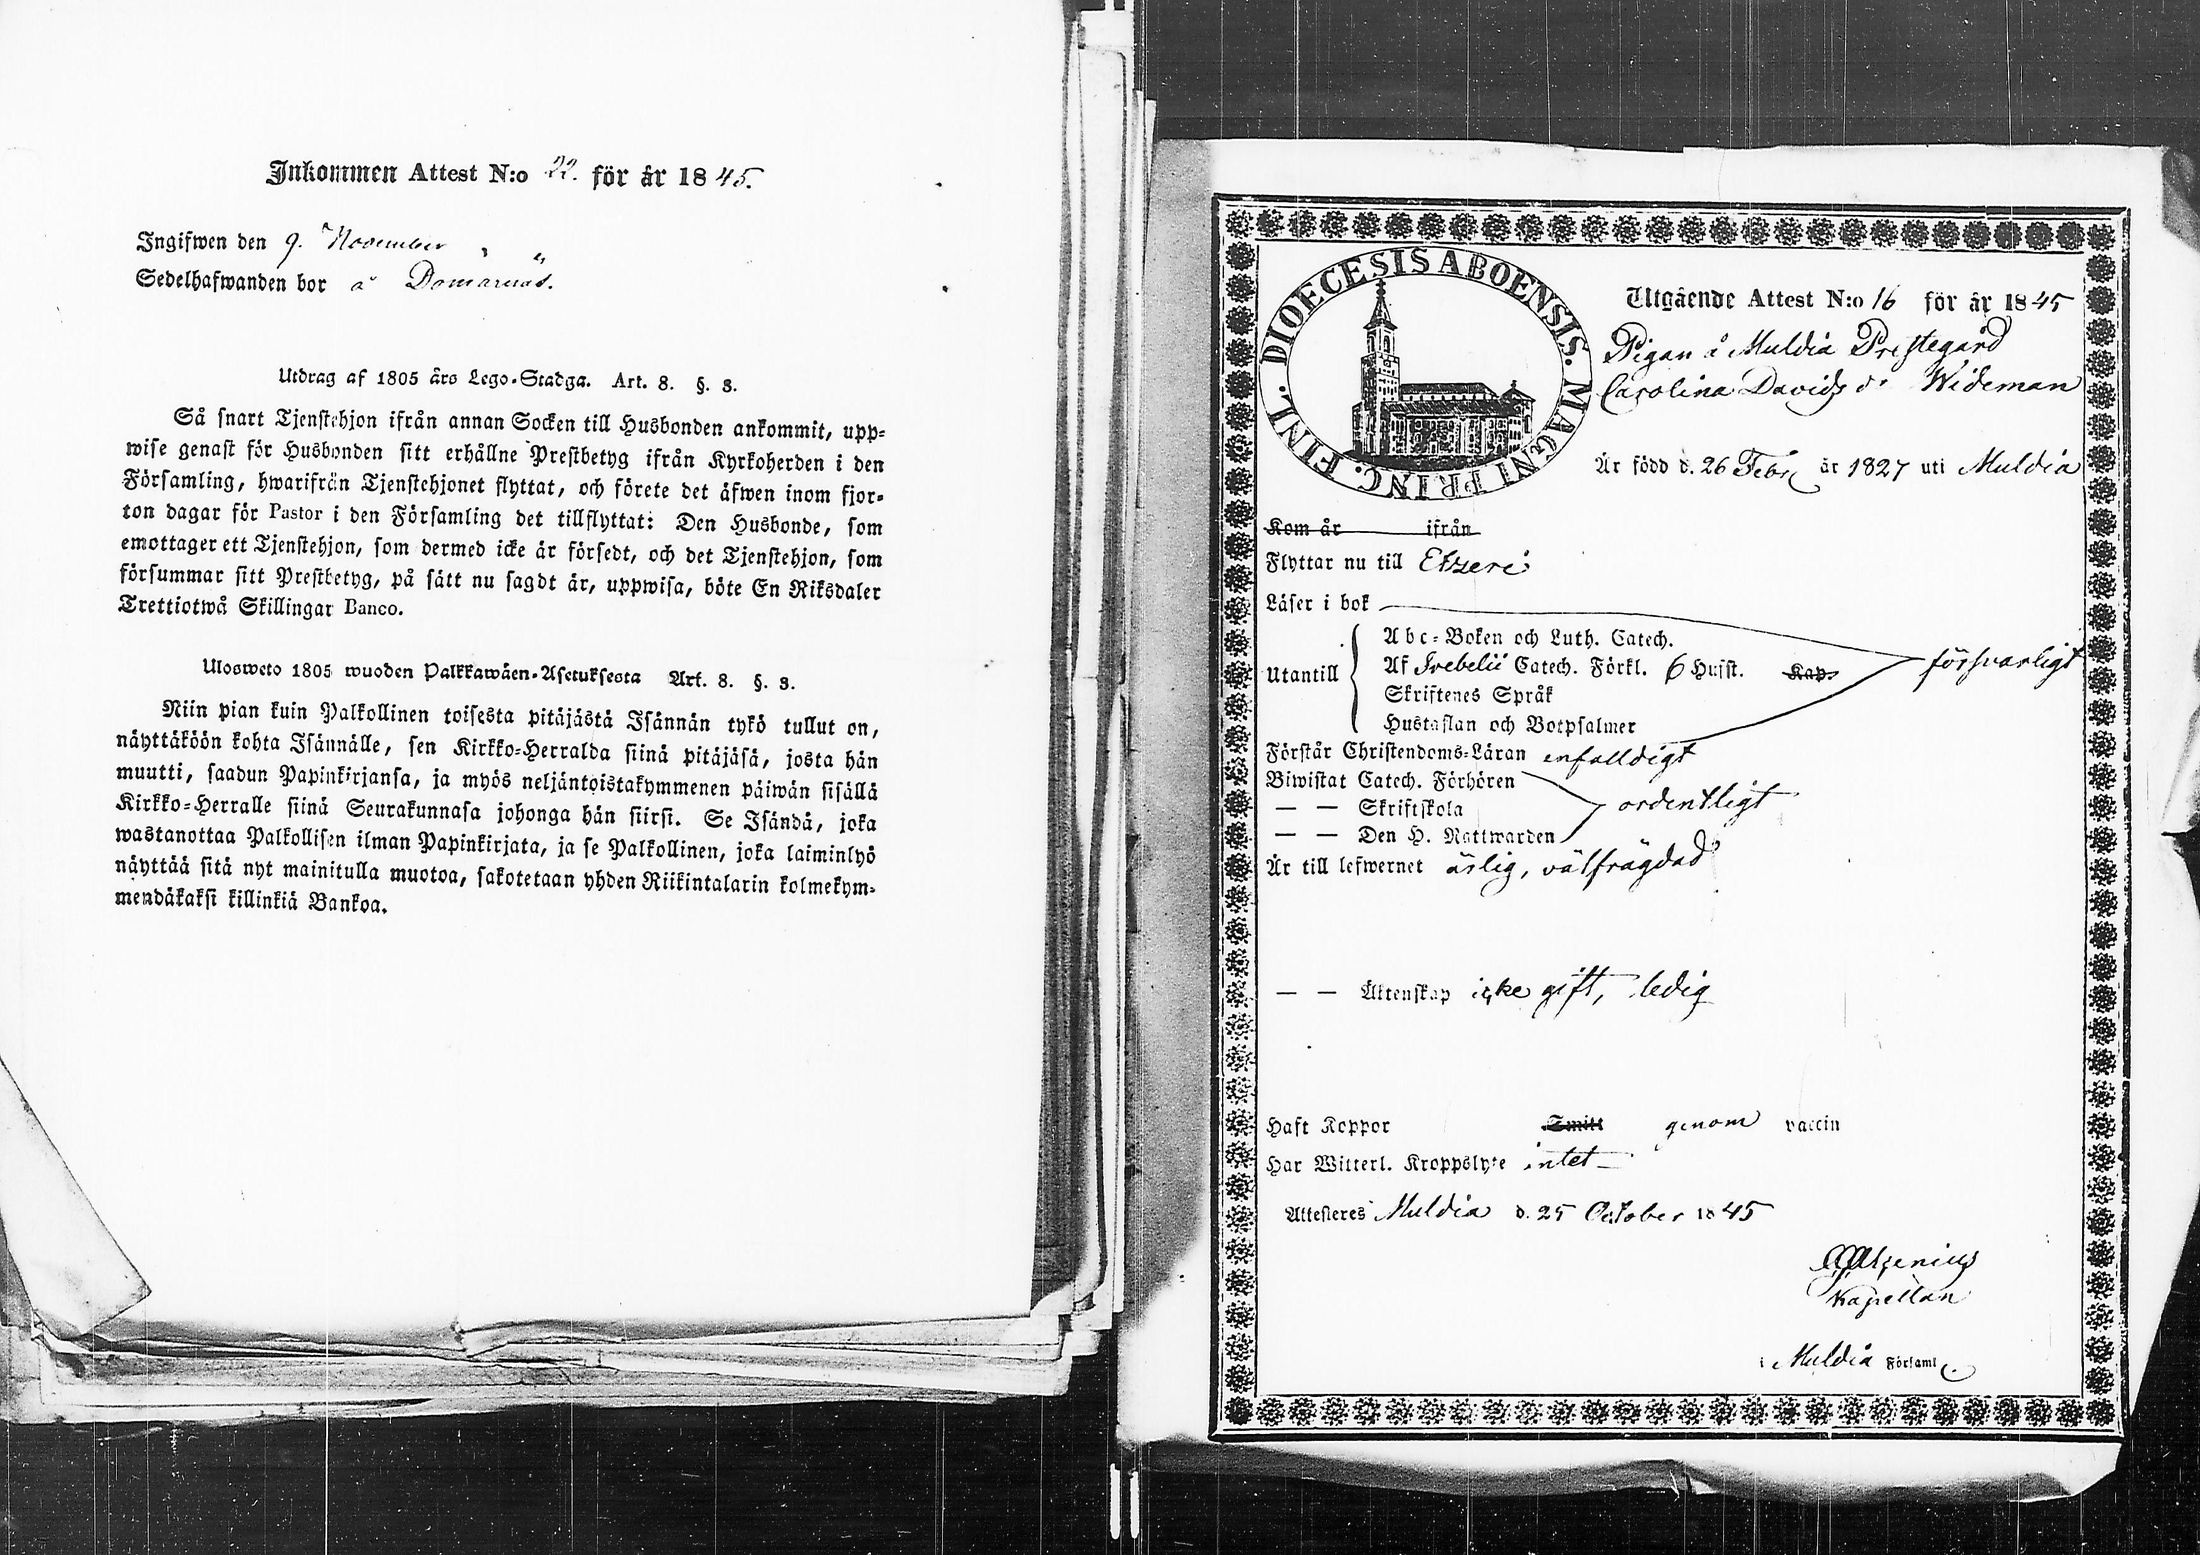 Inkommen Attest N:o 22. för år 1845.
Ingifwen den 9. November
Sedelhafwanden bor å Domarnäs.
Utdrag af 1805 års Lego-Stadga. Art. 8. §. 3.
Så snart Tjenstehjon ifrån annan Socken till Husbonden ankommit, upp-
wise genast för Husbonden sitt erhållne Prestbetyg ifrån Kyrkoherden i den
Församling, hwarifrån Tjenstehjonet flyttat, och förete det äfwen inom fjor-
ton dagar för Pastor i den Församling det tillflyttat: Den Husbonde, som
emottager ett Tjenstehjon, som dermed icke är försedt, och det Tjenstehjon, som
försummar sitt Prestbetyg, på sätt nu sagdt är, uppwisa, böte En Riksdaler
Trettiotwå Skillingar Banco.
Ulosweto 1805 wuoden Palkkawäen-Asetuksesta Art. 8. §. 3.
Niin pian kuin Palkollinen toisesta pitäjästä Isännän tykö tullut on,
näyttäköön kohta Isännälle, sen Kirkko-Herralda siinä pitäjäsä, josta hän
muutti, saadun Papinkirjansa, ja myös neljäntoistakymmenen päiwän sisällä
Kirkko-Herralle siinä Seurakunnasa johonga hän siirsi. Se Isändä, joka
wastanottaa Palkollisen ilman Papinkirjata, ja se Palkollinen, joka laiminlyö
näyttää sitä nyt mainitulla muotoa, sakotetaan yhden Riikintalarin kolmekym-
mendäkaksi killinkiä Bankoa.
DIOECESIS ABOENSIS. MAGNI PRINC. FINL.
Utgående Attest N:o 16 för år 1845
Pigan å Muldia Prestegård
Carolina Davidsd:r Wideman
Är född d. 26 Febr år 1827 uti Muldia
Kom år ifrån
Flyttar nu till Etseri
Läser i bok
Abc-Boken och Luth. Catech.
Utantill Af Svebelii Catech. Förkl. 6 Husst. Kap. försvarligt
Skriftenes Språk
Hustaflan och Botpsalmer
Förstår Christendoms-Läran enfalldigt
Biwistat Catech. Förhören
— — Skriftskola ordentligt
— — Den H. Nattwarden
Är till lefwernet ärlig, välfrägdad
— — Äktenskap icke gift, ledig
Haft Koppor Smitt genom vaccin
Har Witterl. Kroppslyte intet
Attesteres Muldia d. 25 October 1845
Kapellan
i Muldia Församl.